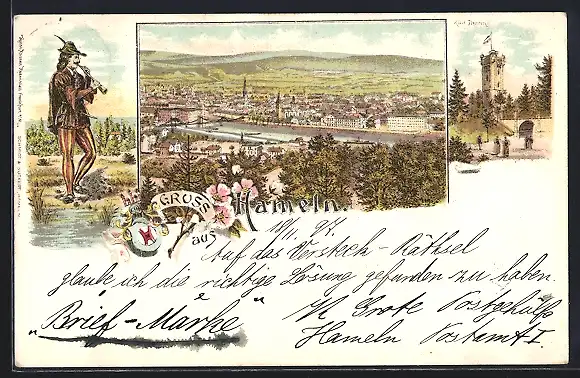 GRUSS
aus
Hameln.
Auf das Versteck-Räthsel
glaube ich die richtige Lösung gefunden zu haben.
"Brief-Marke"
W Grote Postgehülfe
Hameln Postamt I.